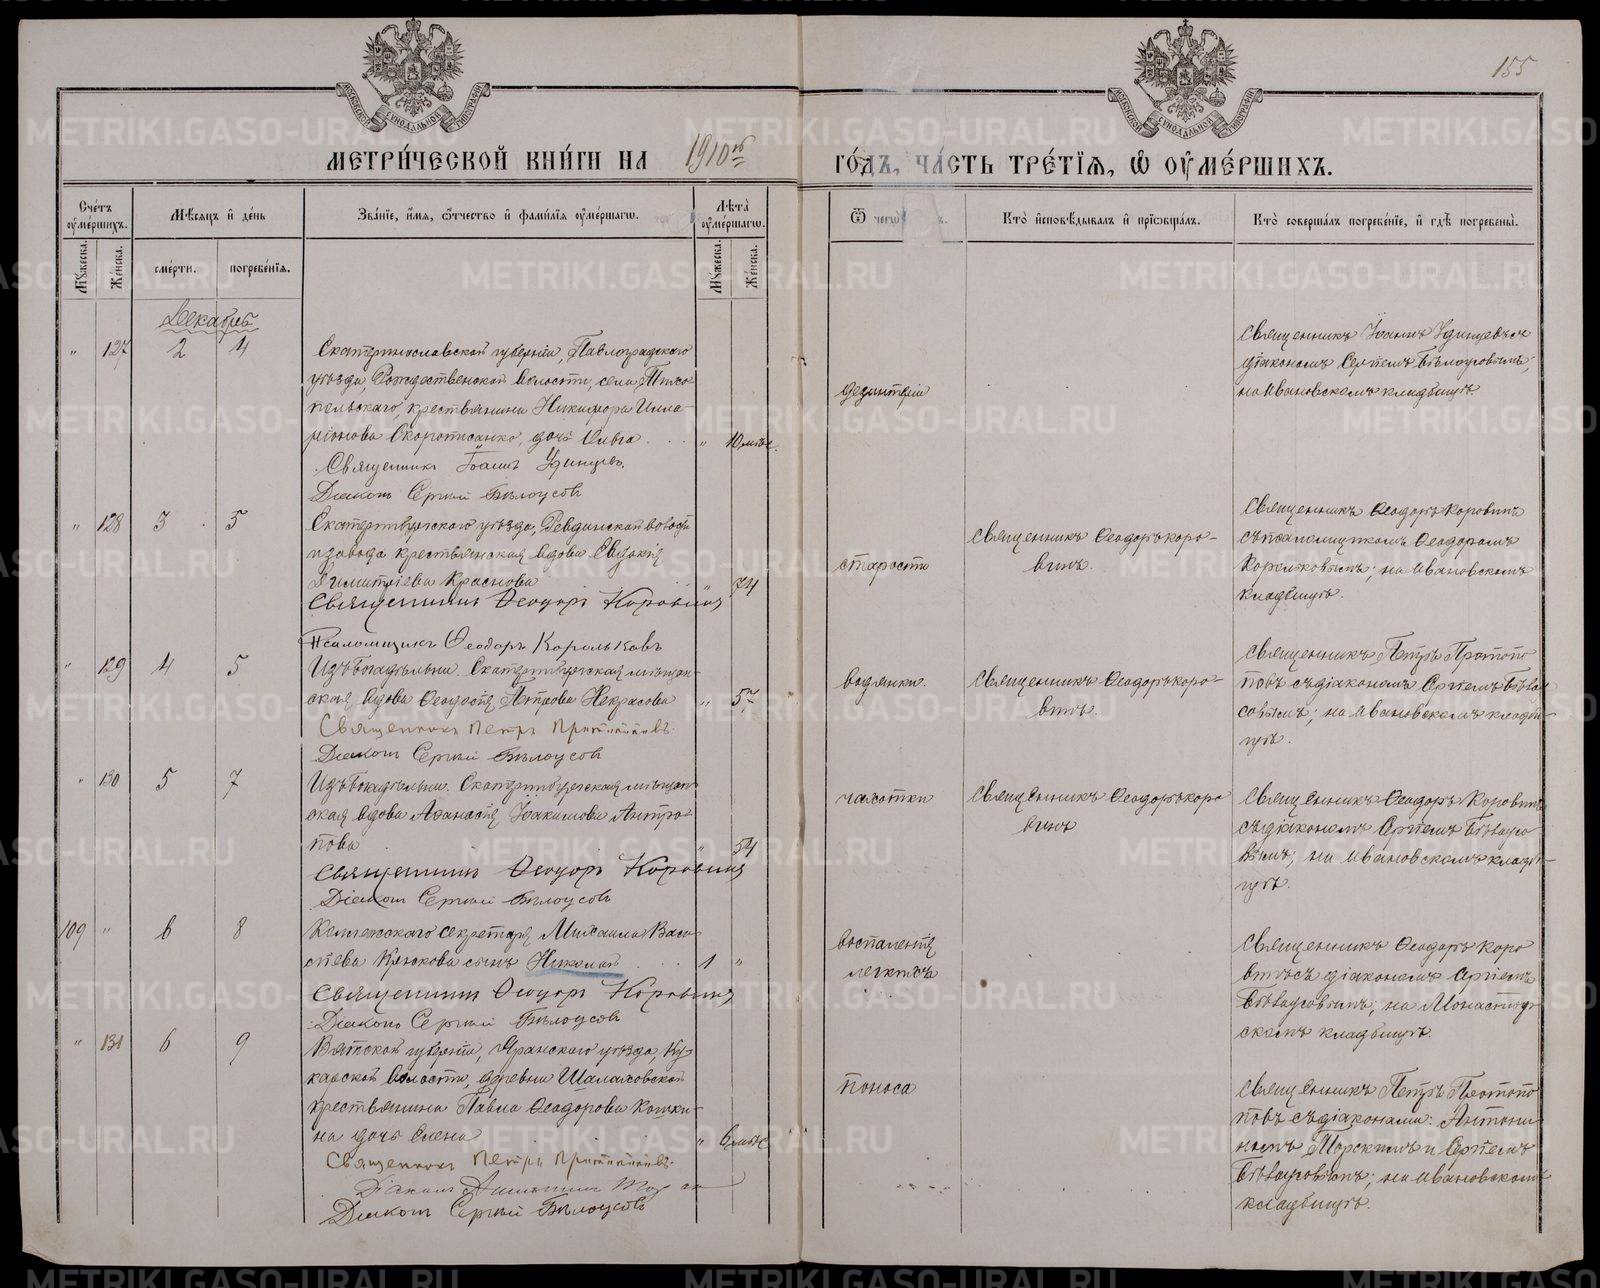 155
МЕТРИ́ЧЕСКОЙ КНИ́ГИ НА 1910й ГО́ДЪ, ЧА́СТЬ ТРЕ́ТІѦ, Ѡ ОУМЕ́РШИХЪ.
Сче́тъ оуме́ршихъ.
Мѣсяцъ и де́нь
Зва́ніе, и́мя, ѻ́тчество и фами́лія оуме́ршагѡ.
Лѣта̀ оуме́ршагѡ.
Ѿ чегѡ̀
Кто̀ и҆сповѣ́дывалъ и҆ прїѡбща́лъ.
Кто̀ соверша́лъ погребе́ніе, и҆ гдѣ̀ погребены̀.
Мꙋ́жеска.
Же́нска.
сме́рти.
погребе́нія.
Мꙋ́жеска.
Же́нска.
Декабрь
" 127 2 4
Екатеринославской губерніи, Павлоградскаго
уѣзда Рождественской волости, села
крестьянина Никифора Илла-
ріонова дочь Ольга " 10 мѣс.
Священникъ Іоаннъ Удинцевъ.
Діаконъ Сергій Бѣлоусовъ
дезинтеріи
Священникъ Іоаннъ Удинцевъ съ
діакономъ Сергіемъ Бѣлоусовымъ;
на Ивановскомъ кладбищѣ.
" 128 3 5
Екатеринбургскаго уѣзда, Ревдинской волости
и завода крестьянская вдова Евдокія
Димитріева Краснова " 74
Священникъ Ѳеодоръ Коровинъ
Псаломщикъ Ѳеодоръ Корольковъ
старости
Священникъ Ѳеодоръ Коро-
винъ.
Священникъ Ѳеодоръ Коровинъ
съ псаломщикомъ Ѳеодоромъ
Корольковымъ; на Ивановскомъ
кладбищѣ.
" 129 4 5
Изъ богадѣльни. Екатеринбургская мѣщан-
ская вдова Ѳеодосія Петрова Некрасова " 57
Священникъ Петръ Протопоповъ.
Діаконъ Сергій Бѣлоусовъ
водянки.
Священникъ Ѳеодоръ Коро-
винъ.
Священникъ Петръ Протопо
повъ съ діакономъ Сергіемъ Бѣлоу
совымъ; на Ивановскомъ кладби-
щѣ.
" 130 5 7
Изъ богадѣльни. Екатеринбургская мѣщан-
ская вдова Аѳанасія Іоакимова Антро-
пова " 54
Священникъ Ѳеодоръ Коровинъ
Діаконъ Сергій Бѣлоусовъ
чахотки
Священникъ Ѳеодоръ Коро
винъ
Священникъ Ѳеодоръ Коровинъ
съ діакономъ Сергіемъ Бѣлоусо
вымъ; на Ивановскомъ кладби-
щѣ.
109 " 6 8
Коллежскаго секретаря Михаила Васи-
Крюкова сынъ Николай 1 "
Священникъ Ѳеодоръ Коровинъ
Діаконъ Сергій Бѣлоусовъ
воспаленія
легкихъ
Священникъ Ѳеодоръ Коро
винъ съ діакономъ Сергіемъ
Бѣлоусовымъ; на Монастыр
скомъ кладбищѣ.
" 131 6 9
Вятской губерніи, Яранскаго уѣзда, Ку-
карской волости, деревни Шалаховской
крестьянина Павла Ѳеодорова Кошки-
на дочь Елена " 6 мѣс
Священникъ Петръ Протопоповъ.
Діаконъ Антонинъ
Діаконъ Сергій Бѣлоусовъ
поноса
Священникъ Петръ Протопо
повъ съ діаконами: Антони-
номъ Торскимъ и Сергіемъ
Бѣлоусовымъ; на Ивановскомъ
кладбищѣ.
METRIKI.GASO-URAL.RU